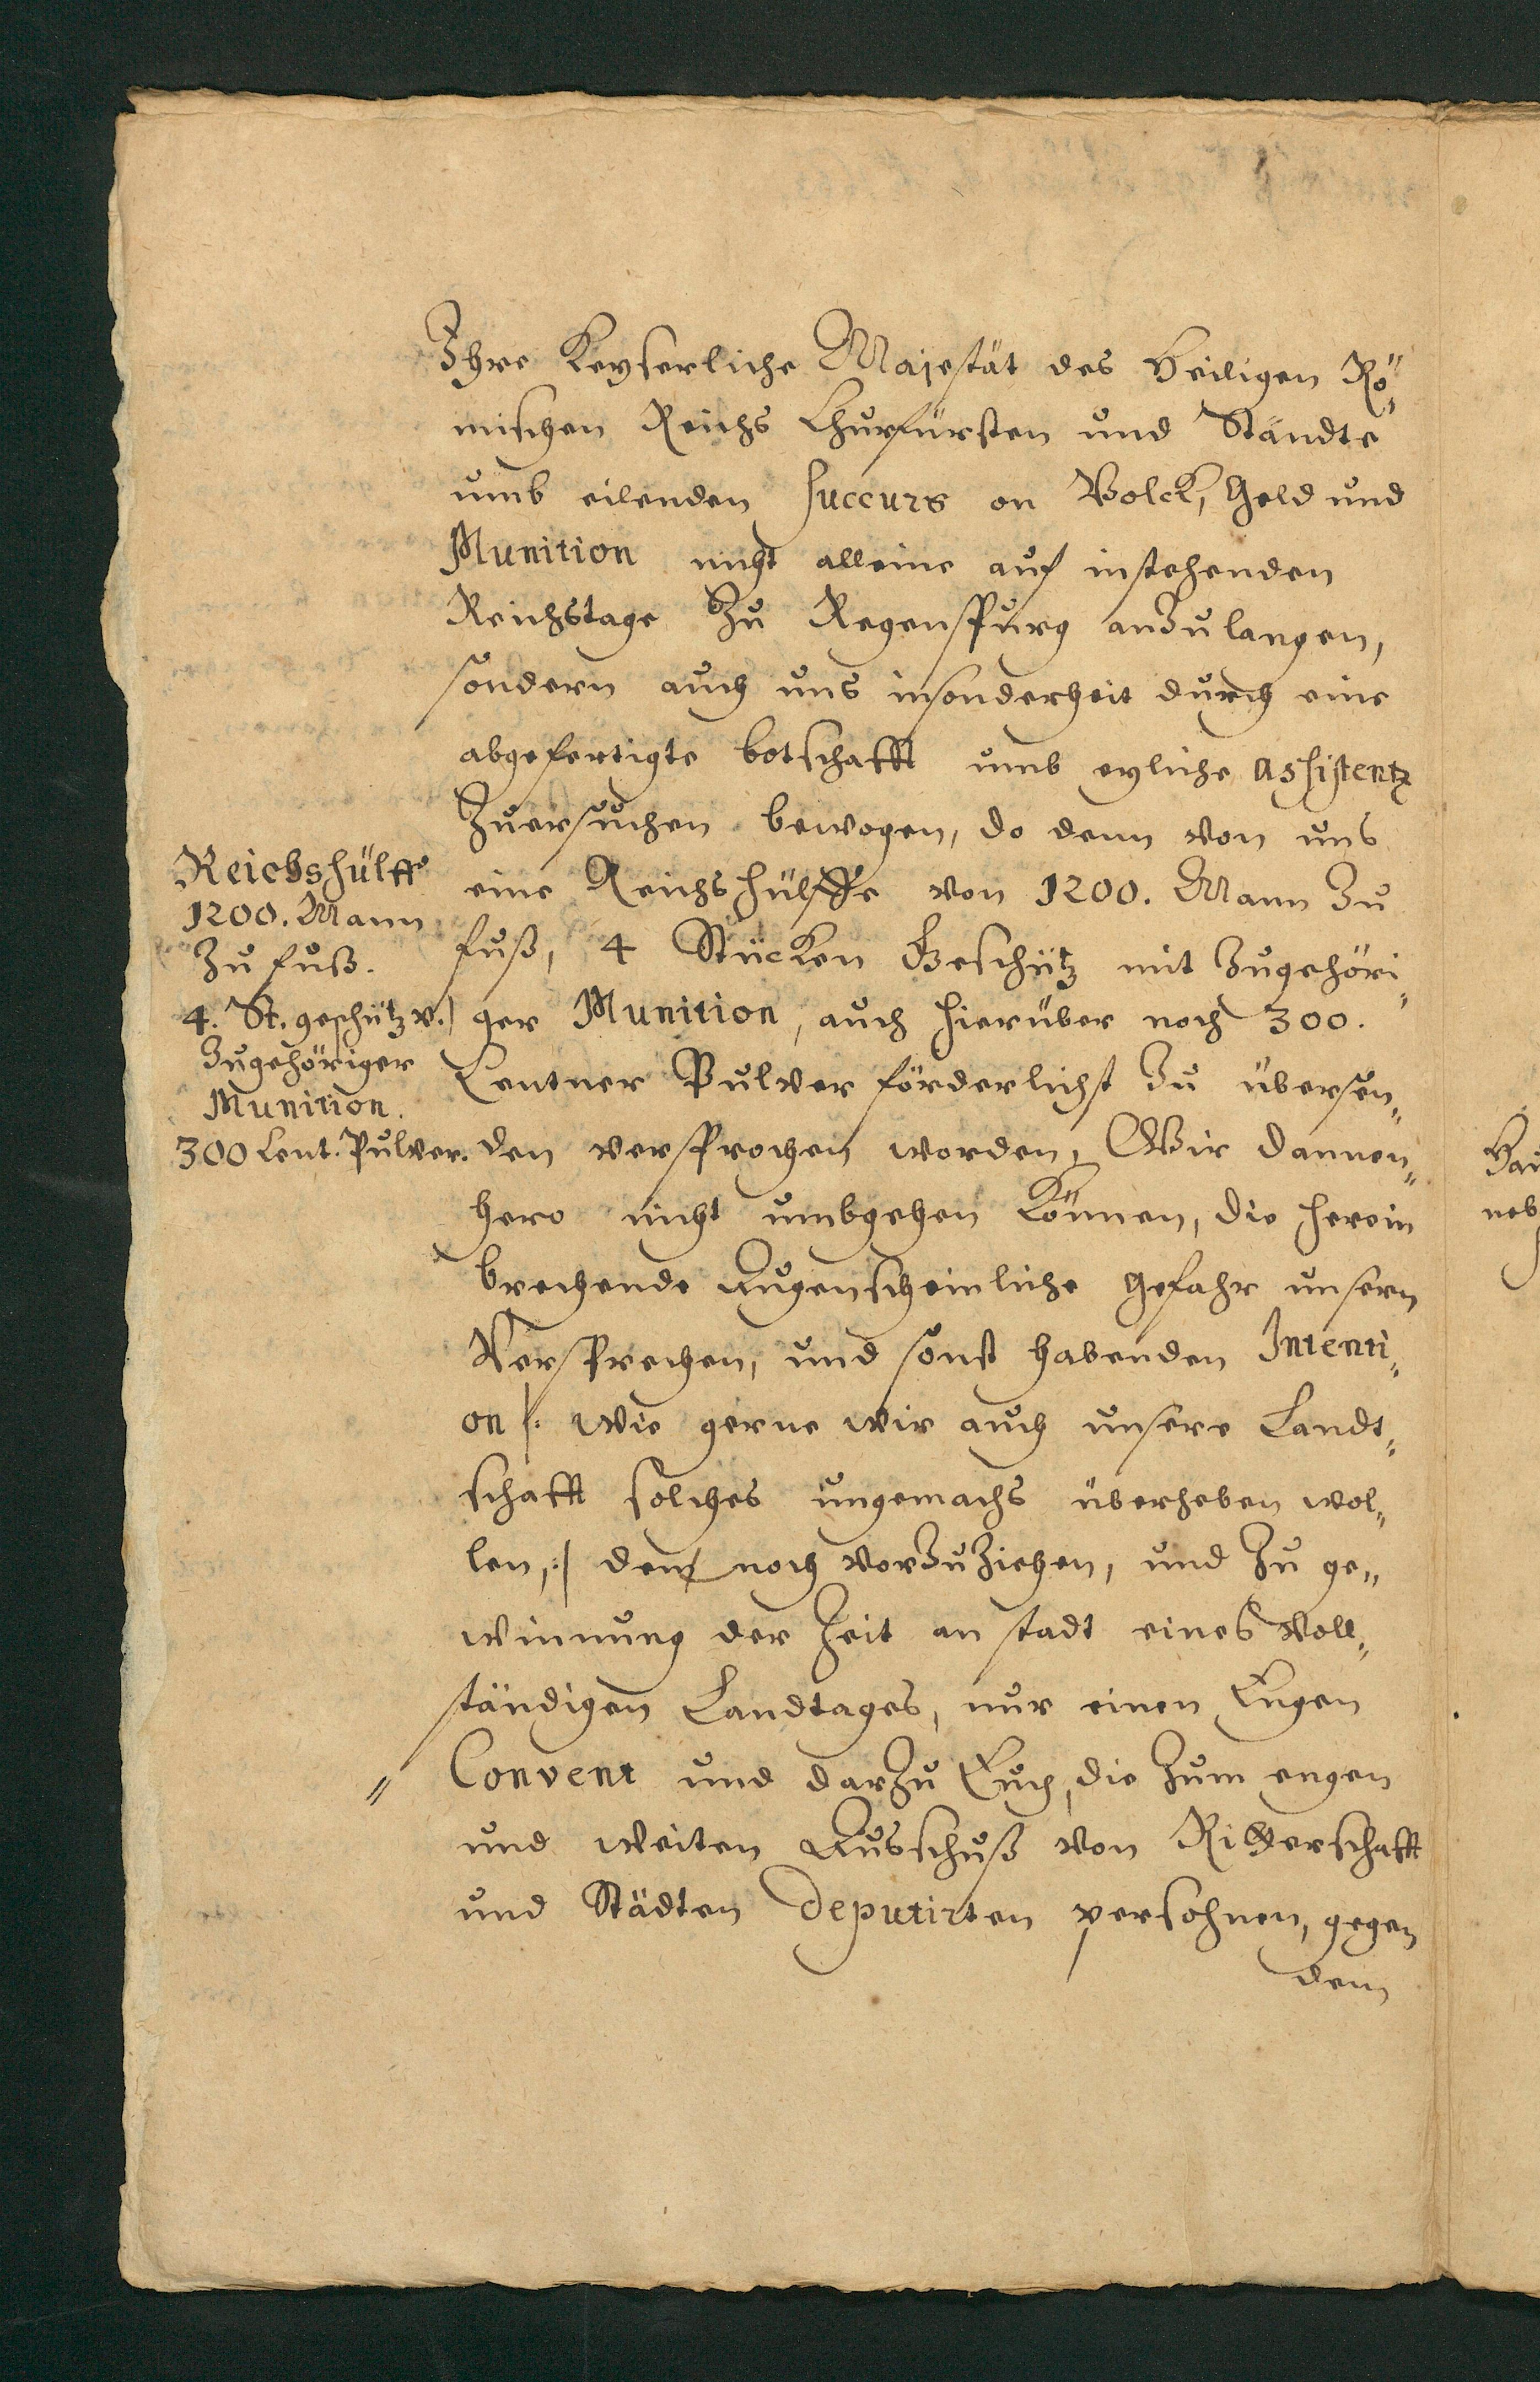 Ihre Keyserliche Majestät des Heiligen Rö„
mischen Reichs Churfürsten und Ständte
umb eilenden Succurs on Volck, Geld und
Munition nicht alleine auf instehenden
Reichstage Zu Regenspurg anZulangen,
sondern auch uns insonderheit durch eine
abgefertigte botschafft umb eyliche Assistentz
Zuersuchen bewogen, do denn von uns
eine Reichshülffe von 1200. Mann Zu
fuß, 4 Stücken Geschütz mit Zugehöri„
ger Munition, auch hierüber noch 300.
Centner Pulver förderlichst Zu übersen„
den versprochen worden, Wir dannen„
hero nicht umbgehen Können, die herein
brechende Augenscheinliche Gefahr unsern
Versprechen, und sonst habenden Intenti„
on |: wie gerne wir auch unsere Landt„
schafft solches ungemachs überheben wol„
len, :| den noch vorZuZiehen, und Zu ge„
winnung der Zeit an stadt eines Voll„
ständigen Landtages, nur einen Engen
Convent und darZu Euch, die Zum engen
und weiten Ausschuß von Ritterschafft
und Städten Deputirten persohnen, gegen
dem
Reichshülffe
1200. Mann
Zu fuß.
4. St. geschütz v.
Zugehöriger
Munition.
300 Cent. Pulver.
neb